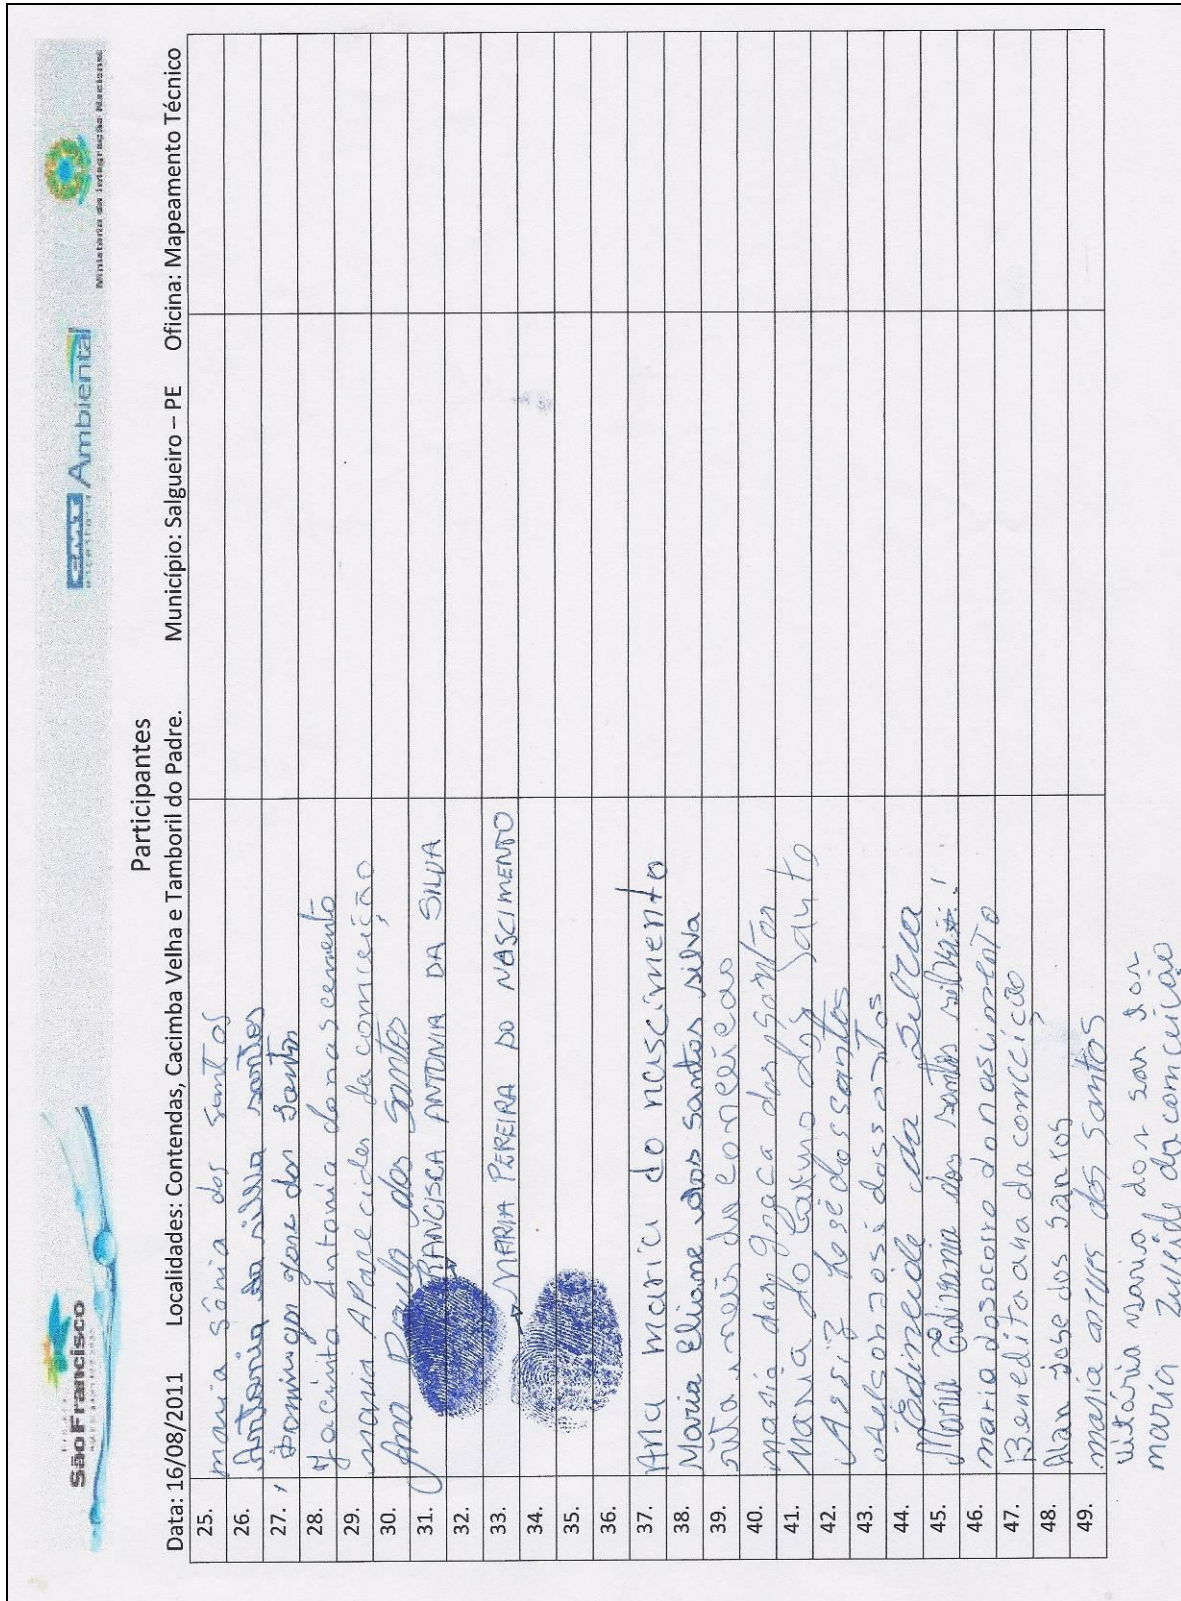 Projeto
São Francisco
CMT Ambiental
Engenharia
Ministério da Integração Nacional
Participantes
Data: 16/08/2011 Localidades: Contendas, Cacimba Velha e Tamboril do Padre. Município: Salgueiro – PE Oficina: Mapeamento Técnico
25. maria sônia dos santos
26. Antonia da silva santos
27. Domingos jose dos Santos
28. Jacinta Antonia do nascimento
29. maria APArecida da conceição
30. Ana Paula dos Santos
31. FRANCISCA ANTONIA DA SILVA
32.
33. MARIA PEREIRA DO NASCIMENTO
34.
35.
36.
37. Ana maria do nascimento
38. Maria Eliane dos Santos silva
39. rita da conceicao
40. maria das graça dos santos
41. Maria do Carmo dos Santo
42. Assiz José dos santos
43. José dos santos
44. Edineide da Silva
45. Maria dos santos
46. maria do socorro do nascimento
47. Benedita ana da conceição
48. Alan Jose dos Santos
49. maria dos Santos
Vitória maria dos san dos
maria Zuleide da conceição